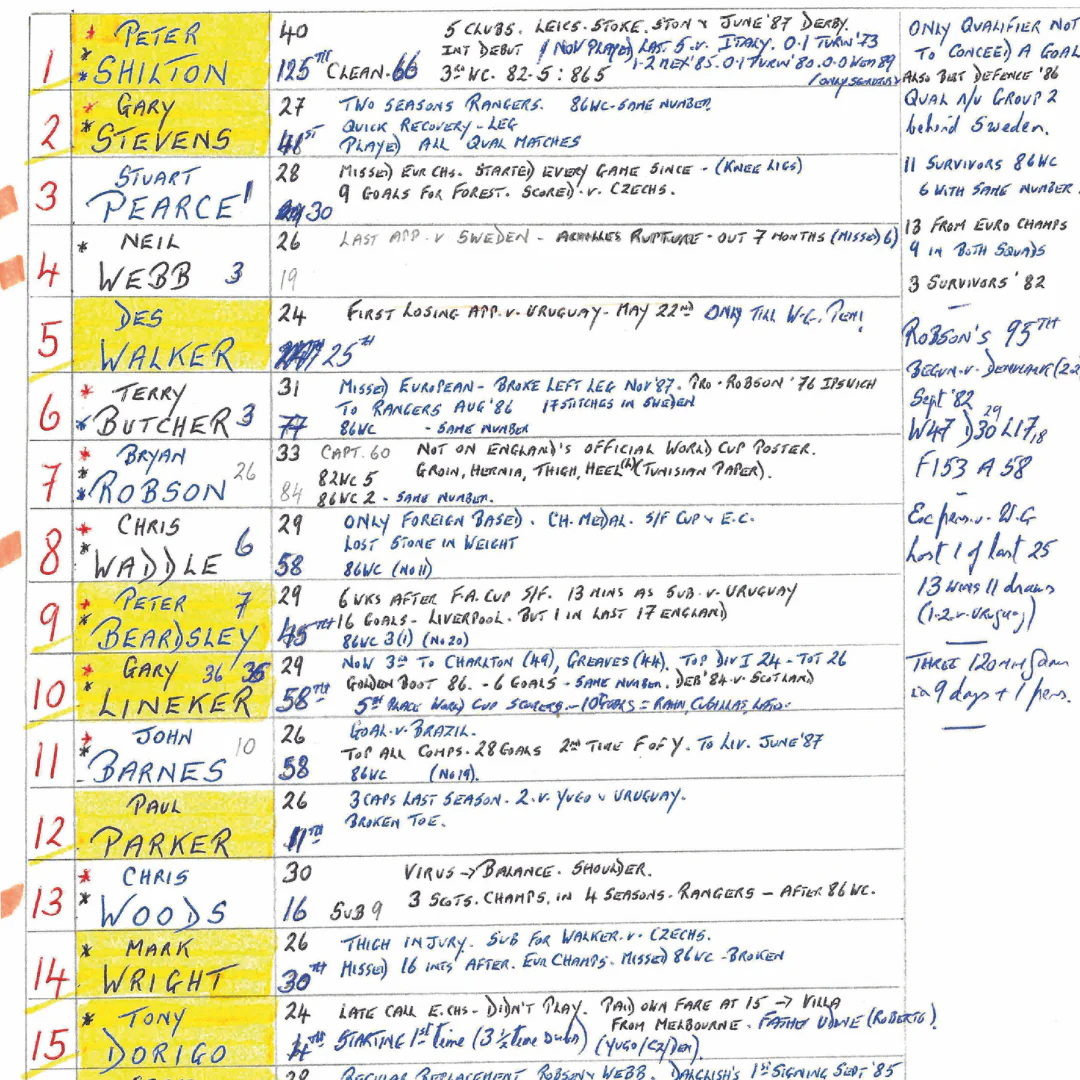 1
* PETER
* SHILTON
40
125TH CLEAN. 66
5 CLUBS. LEICS. STOKE. STON & JUNE '87 DERBY.
INT DEBUT / NOV PLAYED LAST 5. V. ITALY. 0.1 TURIN '73
1-2 MEX '85. 0.1 TURIN '80. 0.0 WEM 89
3RD WC. 82-5 : 86 5
2
* GARY
* STEVENS
27
41ST
TWO SEASONS RANGERS. 86WC-SAME NUMBER.
QUICK RECOVERY - LEG
PLAYED ALL QUAL MATCHES
3
STUART
PEARCE 1
28
30
MISSED EUR CHS. STARTED EVERY GAME SINCE - (KNEE LIGS)
9 GOALS FOR FOREST. SCORED. V. CZECHS.
4
* NEIL
WEBB 3
26
19
LAST APP. V SWEDEN - ACHILLES RUPTURE - OUT 7 MONTHS (MISSED 6)
5
DES
WALKER
24
25TH
FIRST LOSING APP. V. URUGUAY - MAY 22ND ONLY TILL W.G. PEN!
6
* TERRY
* BUTCHER 3
31
77
MISSED EUROPEAN - BROKE LEFT LEG NOV '87. PRO - ROBSON '76 IPSWICH
TO RANGERS AUG '86 17 STITCHES IN SWEDEN
86WC - SAME NUMBER
7
* BRYAN
* ROBSON 26
33 CAPT. 60
84
NOT ON ENGLAND'S OFFICIAL WORLD CUP POSTER.
82WC 5 GROIN, HERNIA, THIGH, HEEL (TUNISIAN PAPER).
86WC 2 - SAME NUMBER.
8
* CHRIS
* WADDLE 6
29
58
ONLY FOREIGN BASED. CH. MEDAL. S/F CUP & E.C.
LOST STONE IN WEIGHT
86WC (No 11)
9
* PETER 7
* BEARDSLEY
29
45TH
6 WKS AFTER F.A. CUP S/F. 13 MINS AS SUB. V. URUGUAY
16 GOALS - LIVERPOOL. BUT 1 IN LAST 17 ENGLAND
86WC 3(1) (No 20)
10
* GARY 36 35
* LINEKER
29
58TH
NOW 3RD TO CHARLTON (49), GREAVES (44). TOP DIV I 24 - TOT 26
GOLDEN BOOT 86. - 6 GOALS - SAME NUMBER. DEB '84. V. SCOTLAND
5TH PLACE WORLD CUP SCORERS - 10 = RAHN, CUBILLAS, LATO.
11
* JOHN 10
* BARNES
26
58
GOAL. V. BRAZIL.
TOP ALL COMPS. 28 GOALS 2ND TIME F OF Y. TO LIV. JUNE '87
86WC (No 19).
12
PAUL
PARKER
26
11TH
3 CAPS LAST SEASON. 2. V. YUGO & URUGUAY.
BROKEN TOE.
13
* CHRIS
* WOODS
30
16 SUB 9
VIRUS -> BALANCE. SHOULDER.
3 SCOTS. CHAMPS. IN 4 SEASONS. RANGERS - AFTER 86 WC.
14
* MARK
WRIGHT
26
30TH
THIGH INJURY. SUB FOR WALKER. V. CZECHS.
MISSED 16 INTS AFTER. EUR CHAMPS. MISSED 86WC - BROKEN
15
* TONY
DORIGO
24
4TH
LATE CALL E.CHS - DIDN'T PLAY. PAID OWN FARE AT 15 -> VILLA
FROM MELBOURNE. FATHER UDINE (ROBERTO).
STARTING 1ST time (3 ½ time subs) (YUGO/CZ/DEN).
REGULAR REPLACEMENT ROBSON & WEBB. DALGLISH'S 1ST SIGNING SEPT '85
ONLY QUALIFIER NOT
TO CONCEED A GOAL
ALSO BEST DEFENCE '86
QUAL R/U GROUP 2
behind Sweden.
11 SURVIVORS 86WC
6 WITH SAME NUMBER.
13 FROM EURO CHAMPS
9 IN BOTH SQUADS
3 SURVIVORS '82
ROBSON'S 95TH
BEGUN. V. DENMARK (22
Sept '82
W47 D30 29 L17, 18
F153 A 58
Exc pens. v. W.G
Lost 1 of last 25
13 wins 11 draws
(1-2. v. Uruguay)
THREE 120 MM
in 9 days + 1 pens.